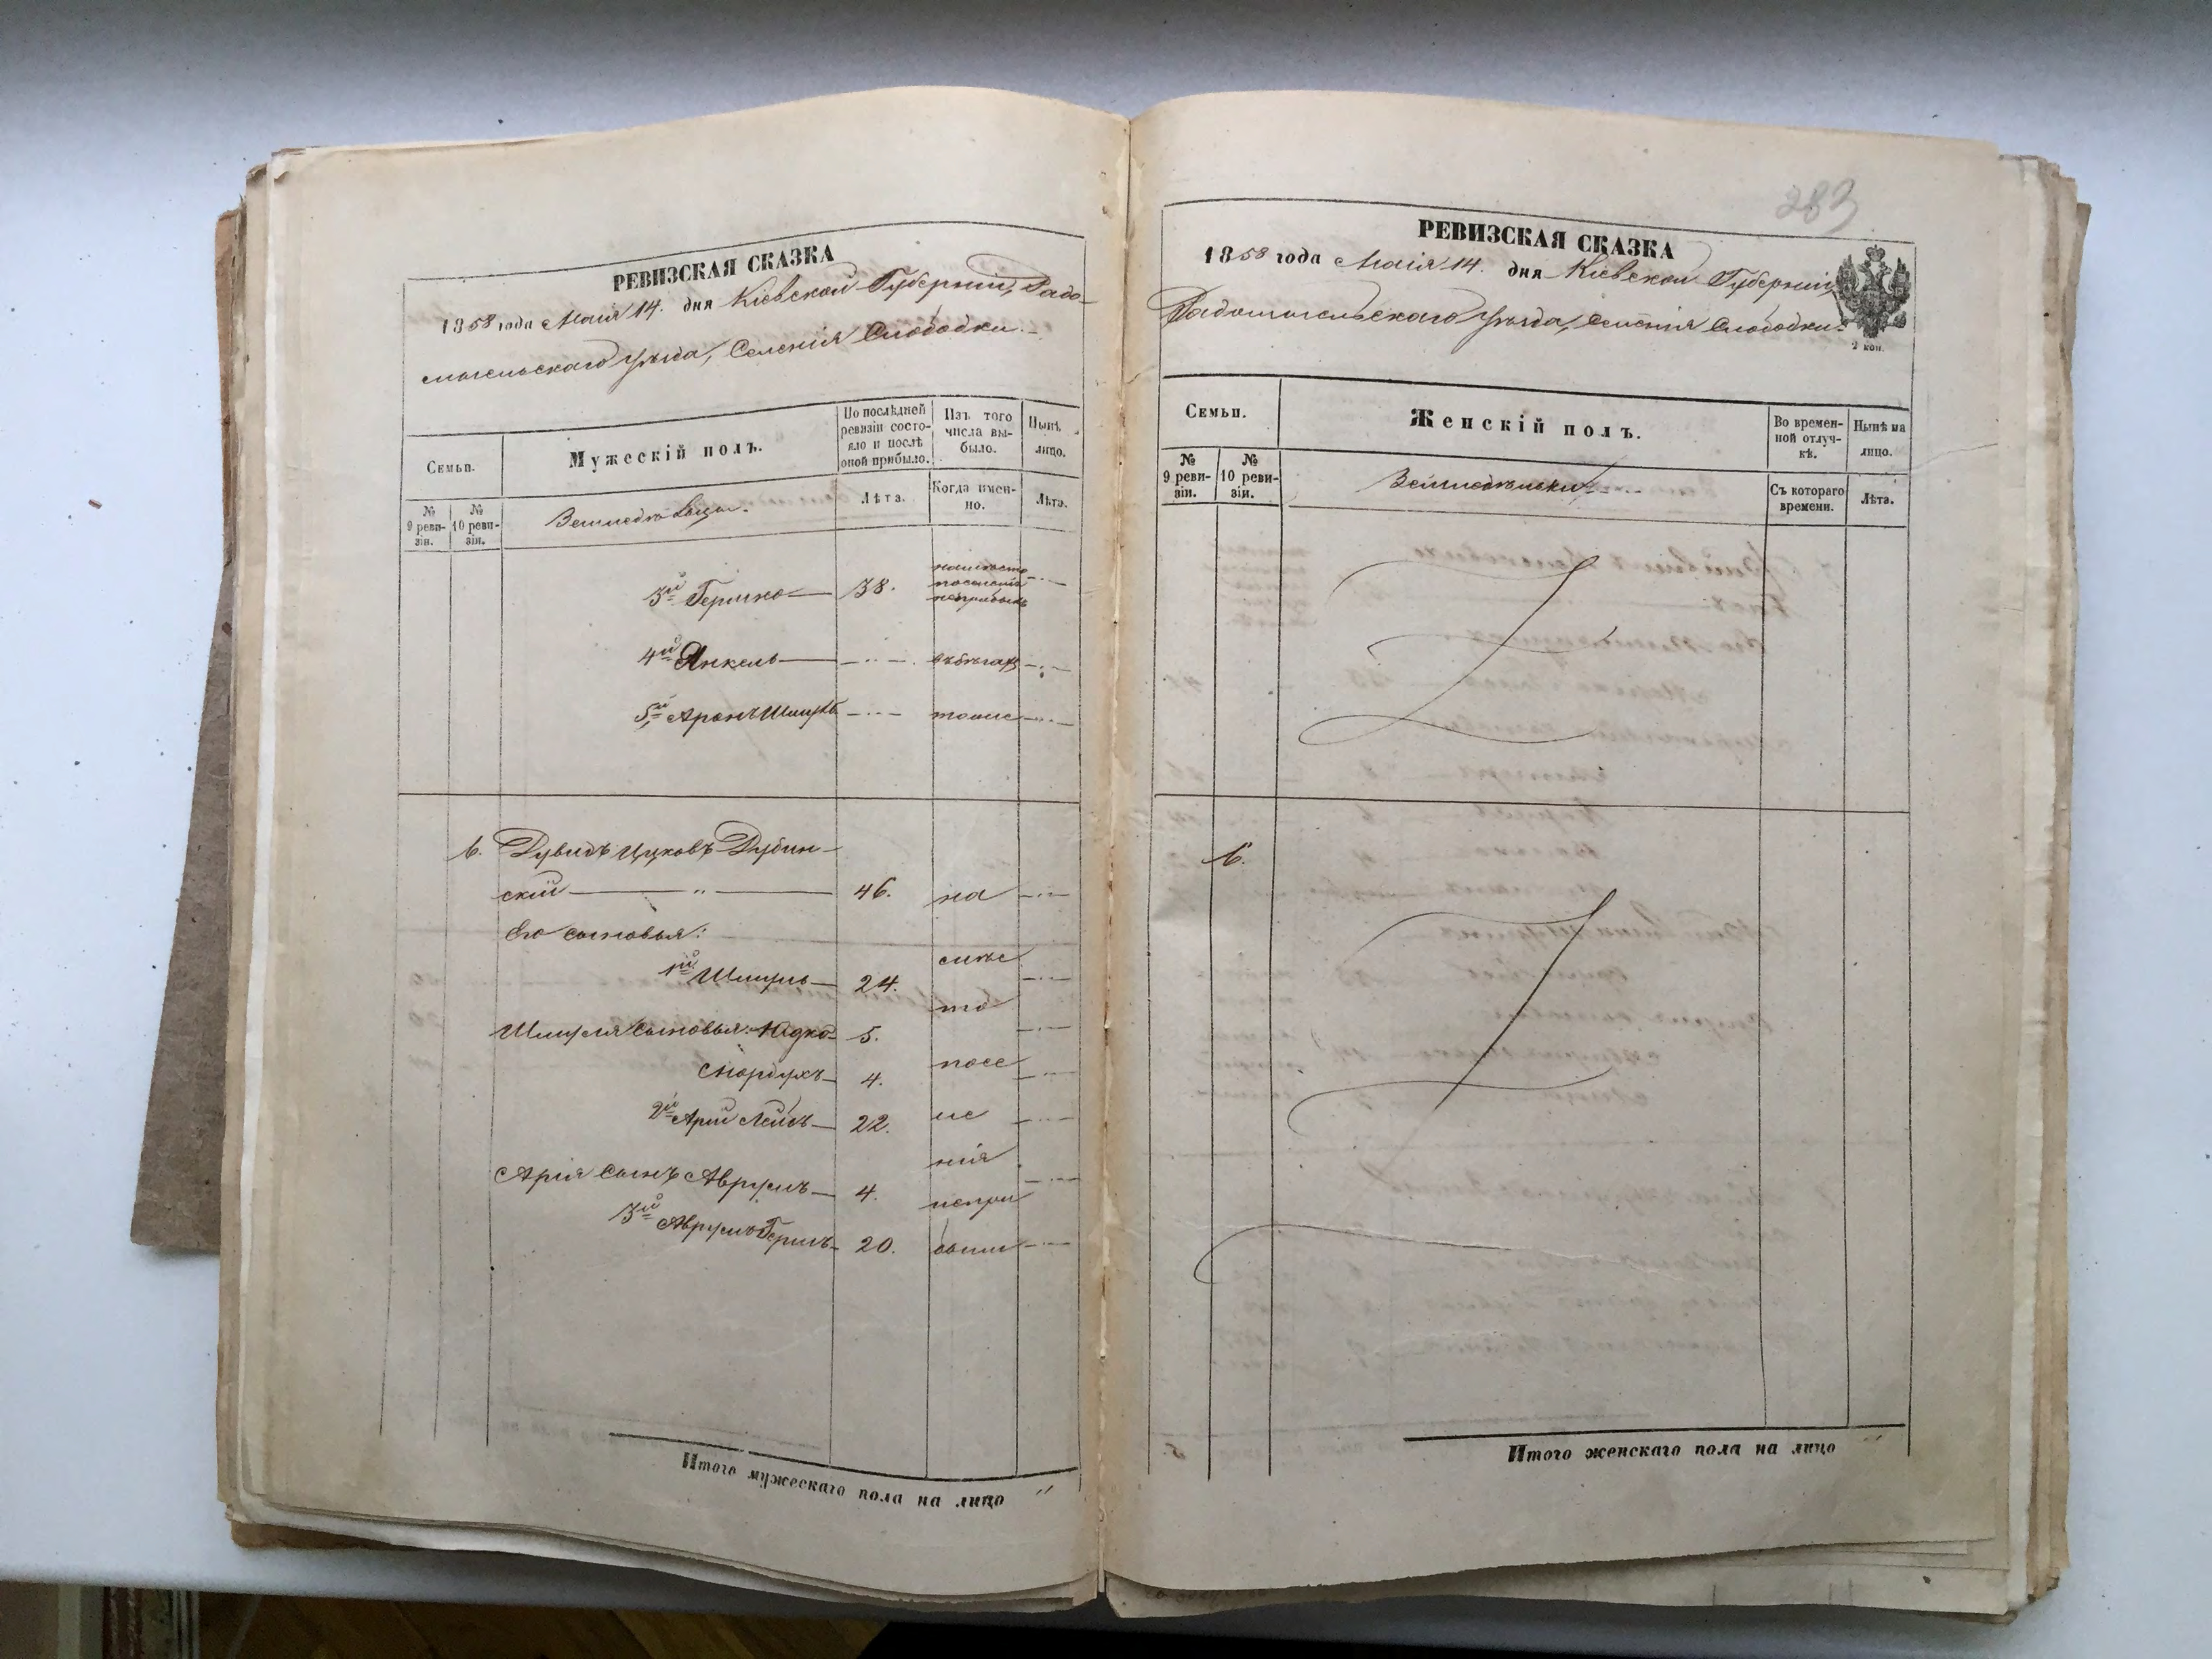 РЕВИЗСКАЯ СКАЗКА
1858 года Маія 14. дня Кіевской Губерніи, Радо-
мысльскаго Уѣзда, Селенія Слободки.
Семьи.
Мужескій полъ.
По послѣдней ревизіи состо-
яло и послѣ
оной прибыло.
Изъ того
числа вы-
было.
Нынѣ
лицо.
№
9 реви-
зіи.
№
10 реви-
зіи.
Земледѣльцы.
Лѣта.
Когда имен-
но.
Лѣта.
3й Гершко 38. на мѣсто
поселенія
неприбылъ
4й Янкель въ бѣгахъ
5й Аронъ Шмуль тоже
6. Дувидъ Ицковъ Дубин-
скій 46. на
Его сыновья:
1й Шмуль 24. мѣс
то
Шмуля сыновья: Юдко 5.
Мордухъ 4. посе
2й Арій Лейбъ 22. ле
нія
Арія сынъ Аврумъ 4. непри
3й Аврумъ Гершъ 20. были
Итого мужескаго пола на лицо "
283
РЕВИЗСКАЯ СКАЗКА
1858 года Маія 14. дня Кіевской Губерніи,
Радомысльскаго Уѣзда, Селенія Слободки.
2 коп.
Семьи.
Женскій полъ.
Во времен-
ной отлуч-
кѣ.
Нынѣ на
лицо.
№
9 реви-
зіи.
№
10 реви-
зіи.
Съ котораго
времени.
Лѣта.
6.
Итого женскаго пола на лицо "